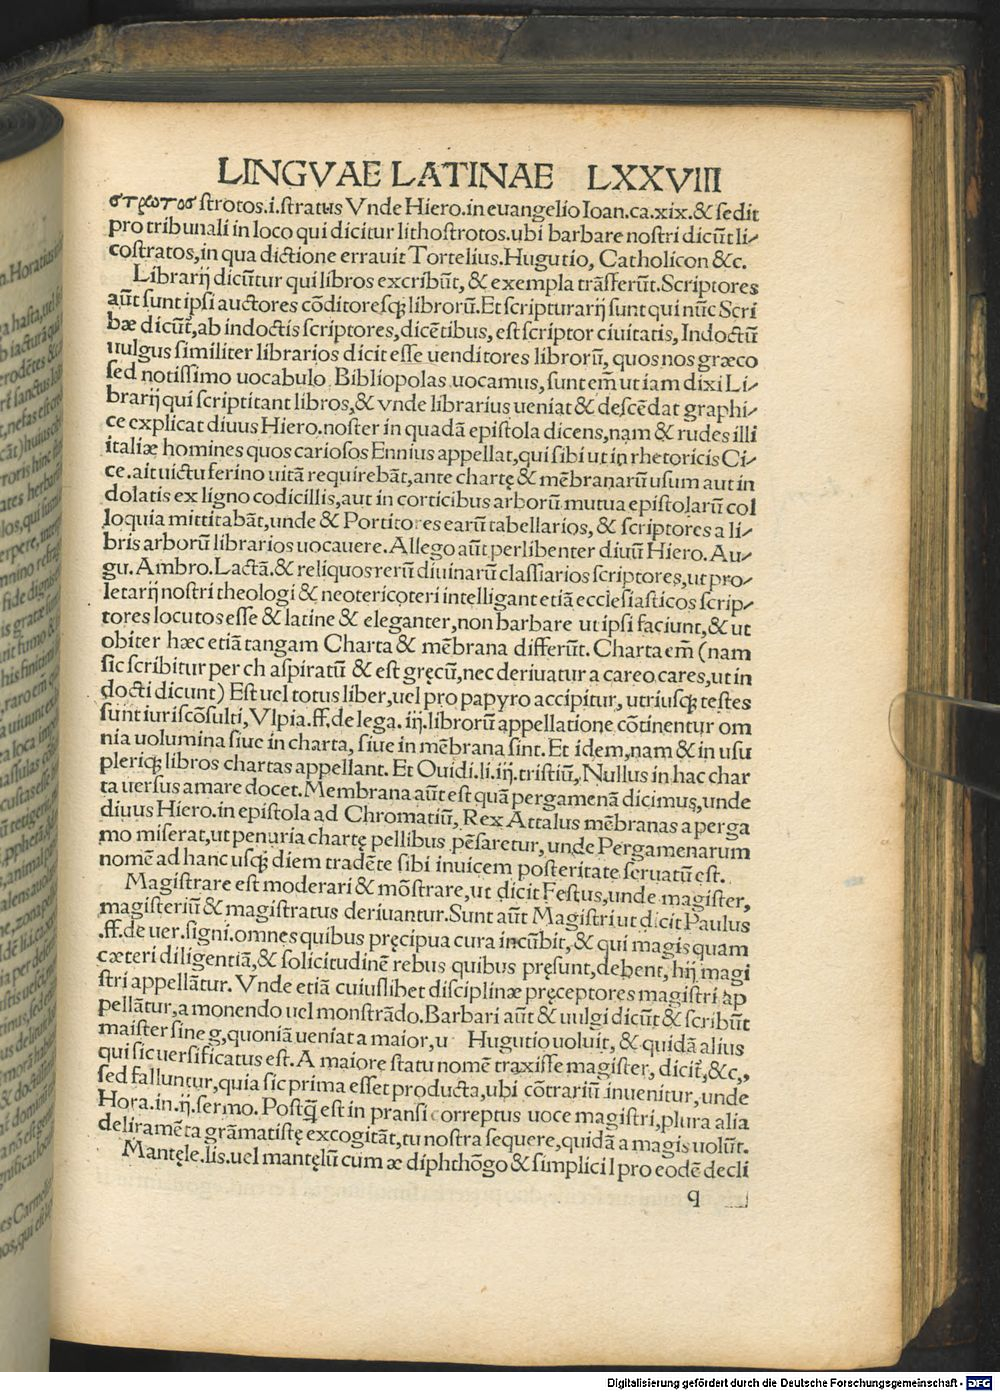 LINGVAE LATINAE LXXVIII
στρωτοσ strotos.i.stratus Vnde Hiero.in euangelio Ioan.ca.xix.& sedit
pro tribunali in loco qui dicitur lithostrotos.ubi barbare nostri dicūt li⸗
costratos,in qua dictione errauit Tortelius.Hugutio, Catholicon &c.
Librarij dicūtur qui libros excribūt, & exempla trāsferūt.Scriptores
aūt sunt ipsi auctores cōditoresq; librorū.Et scripturarij sunt qui nūc Scri
bæ dicūt,ab indoctis scriptores,dicētibus, est scriptor ciuitatis, Indoctū
uulgus similiter librarios dicit esse uenditores librorū, quos nos græco
sed notissimo uocabulo Bibliopolas uocamus, sunt em̄ ut iam dixi Li⸗
brarij qui scriptitant libros,& vnde librarius ueniat & descēdat graphi⸗
ce explicat diuus Hiero.noster in quadā epistola dicens,nam & rudes illi
italiæ homines quos cariosos Ennius appellat,qui sibi ut in rhetoricis Ci⸗
ce.ait uictu ferino uitā requirebāt,ante chartę & mēbranarū usum aut in
dolatis ex ligno codicillis,aut in corticibus arborū mutua epistolarū col
loquia mittitabāt,unde & Portitores earū tabellarios, & scriptores a li⸗
bris arborū librarios uocauere.Allego aūt perlibenter diuū Hiero. Au⸗
gu. Ambro.Lactā.& reliquos rerū diuinarū classiarios scriptores,ut pro⸗
letarij nostri theologi & neotericoteri intelligant etiā ecclesiasticos scrip⸗
tores locutos esse & latine & eleganter,non barbare ut ipsi faciunt,& ut
obiter hæc etiā tangam Charta & mēbrana differūt. Charta em̄ (nam
sic scribitur per ch aspiratū & est gręcū,nec deriuatur a careo cares,ut in
docti dicunt) Est uel totus liber,uel pro papyro accipitur, utriusq; testes
sunt iuriscōsulti, Vlpia.ff.de lega. iij.librorū appellatione cōtinentur om
nia uolumina siue in charta, siue in mēbrana sint. Et idem,nam & in usu
pleriq; libros chartas appellant. Et Ouidi.li.iij.tristiū, Nullus in hac char
ta uersus amare docet. Membrana aūt est quā pergamenā dicimus,unde
diuus Hiero.in epistola ad Chromatiū, Rex Attalus mēbranas a perga
mo miserat,ut penuria chartę pellibus pēsaretur, unde Pergamenarum
nomē ad hanc usq; diem tradēte sibi inuicem posteritate seruatū est.
Magistrare est moderari & mōstrare,ut dicit Festus,unde magister,
magisteriū & magistratus deriuantur.Sunt aūt Magistri ut dicit Paulus
.ff.de uer.signi.omnes quibus pręcipua cura incūbit, & qui magis quam
cæteri diligentiā,& solicitudinē rebus quibus pręsunt,debent, hij magi
stri appellātur. Vnde etiā cuiuslibet disciplinæ pręceptores magistri ap
pellātur,a monendo uel monstrādo.Barbari aūt & uulgi dicūt & scribūt
maister sine g,quoniā ueniat a maior,u Hugutio uoluit, & quidā alius
qui sic uersificatus est. A maiore statu nomē traxisse magister, dicit,&c.,
sed falluntur,quia sic prima esset producta,ubi cōtrariū inuenitur, unde
Hora.in.ij.sermo. Postq̄ est in pransi correptus uoce magistri,plura alia
deliramēta grāmatistę excogitāt,tu nostra sequere,quidā a magis uolūt.
Mantęle.lis.uel mantęlū cum æ diphthōgo & simplici l pro eodē decli
q
Digitalisierung gefördert durch die Deutsche Forschungsgemeinschaft - DFG